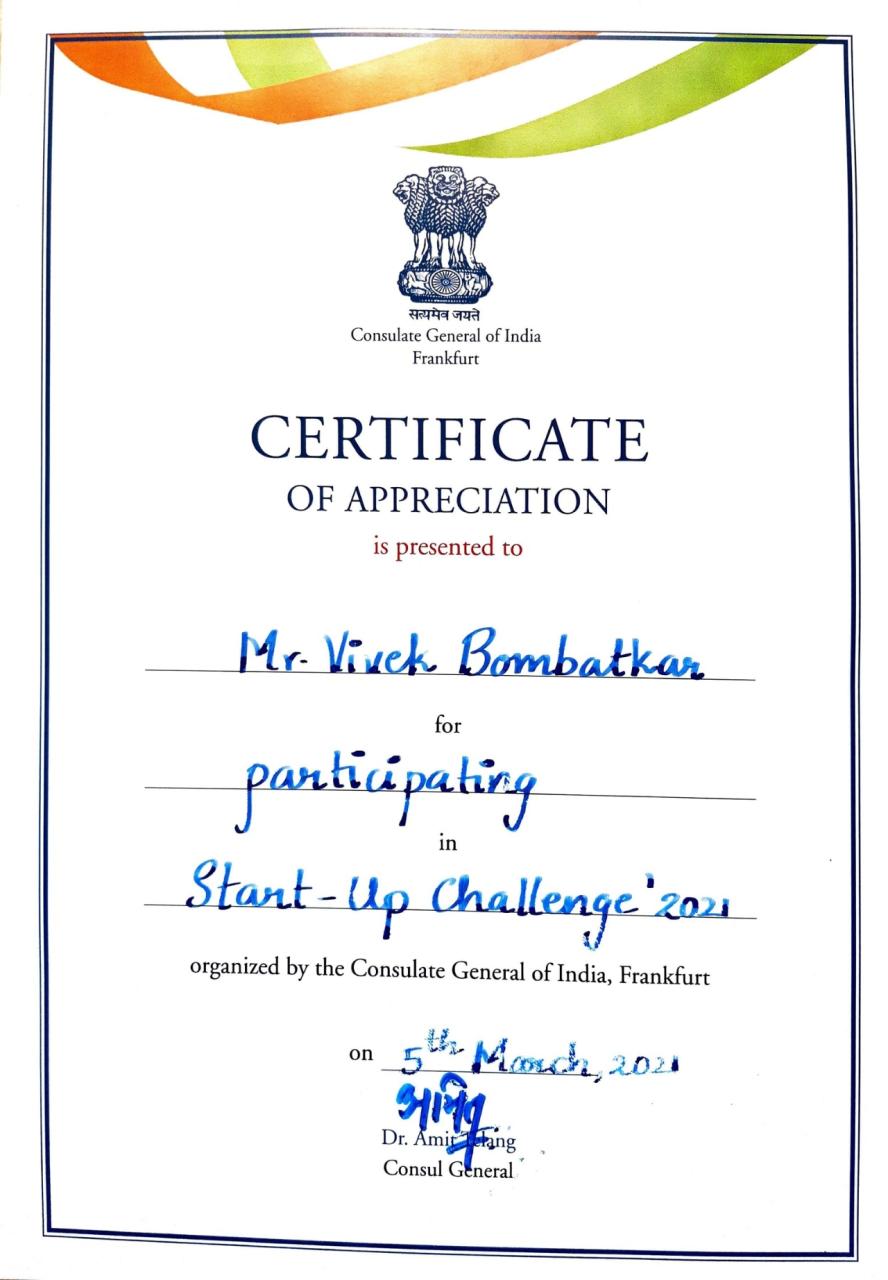 सत्यमेव जयते
Consulate General of India
Frankfurt
CERTIFICATE
OF APPRECIATION
is presented to
Mr. Vivek Bombatkar
for
participating
in
Start-Up Challenge '2021
organized by the Consulate General of India, Frankfurt
on 5th March, 2021
Dr. Amit Telang
Consul General